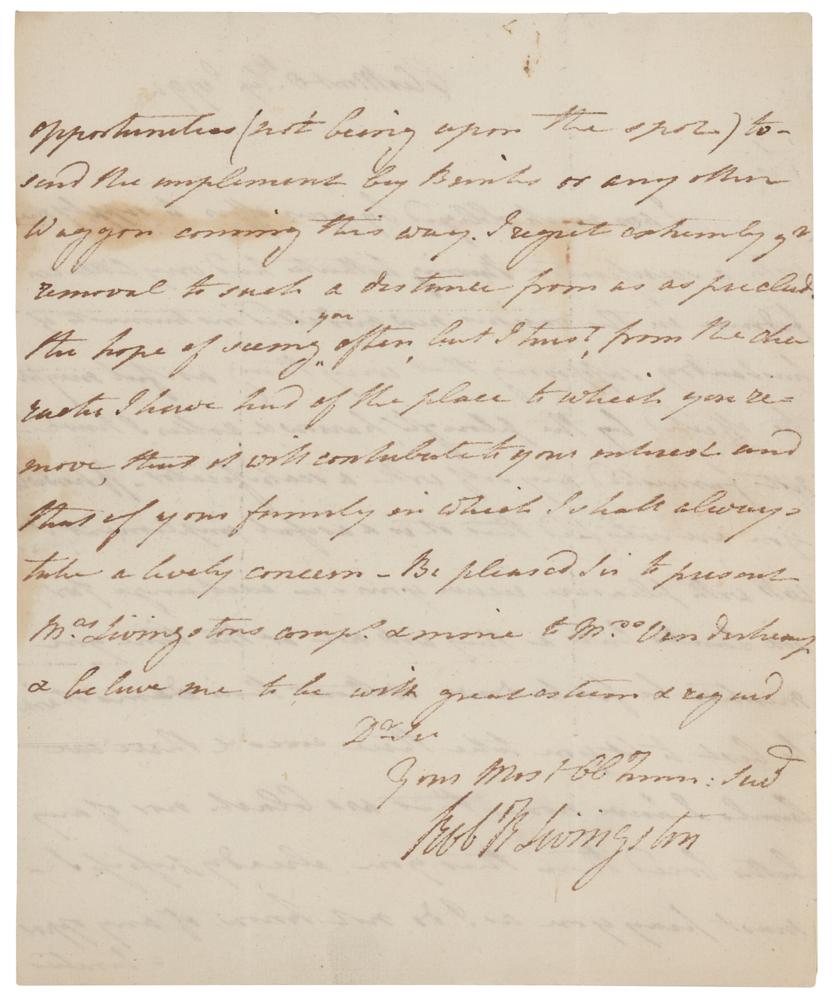 opportunities (not being upon the spot) to-
send the implement by Beniks or any other
Waggon coming this way. I regret extremely yr
removal to such a distance from us as preclude
the hope of seeing you often, but I trust, from the cha
racter I have had of the place to which you re=
move, that it will contribute to your interest and
that of your family in which I shall always
take a lively concern - Be pleased Sir to present
Mrs Livingstons compt. & mine to Mrs Vanderkemp
& believe me to be with great esteem & regard
Dr Sir
Your Most Ob Hum: Servt
Rob R Livingston